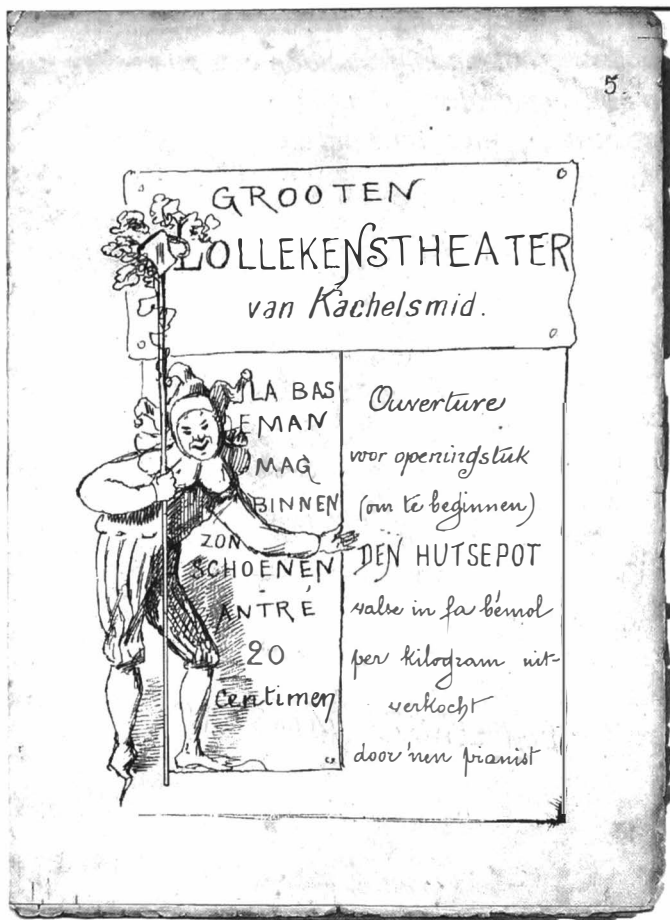 5.
GROOTEN
LOLLEKENSTHEATER
van Kachelsmid.
LA BAS
EMAN
MAG
BINNEN
ZON
SCHOENEN
ANTRÉ
20
centimen
Ouverture
voor openingstuk
(om te beginnen)
DEN HUTSEPOT
valse in fa bémol
per kilogram uit-
verkocht
door 'nen pianist